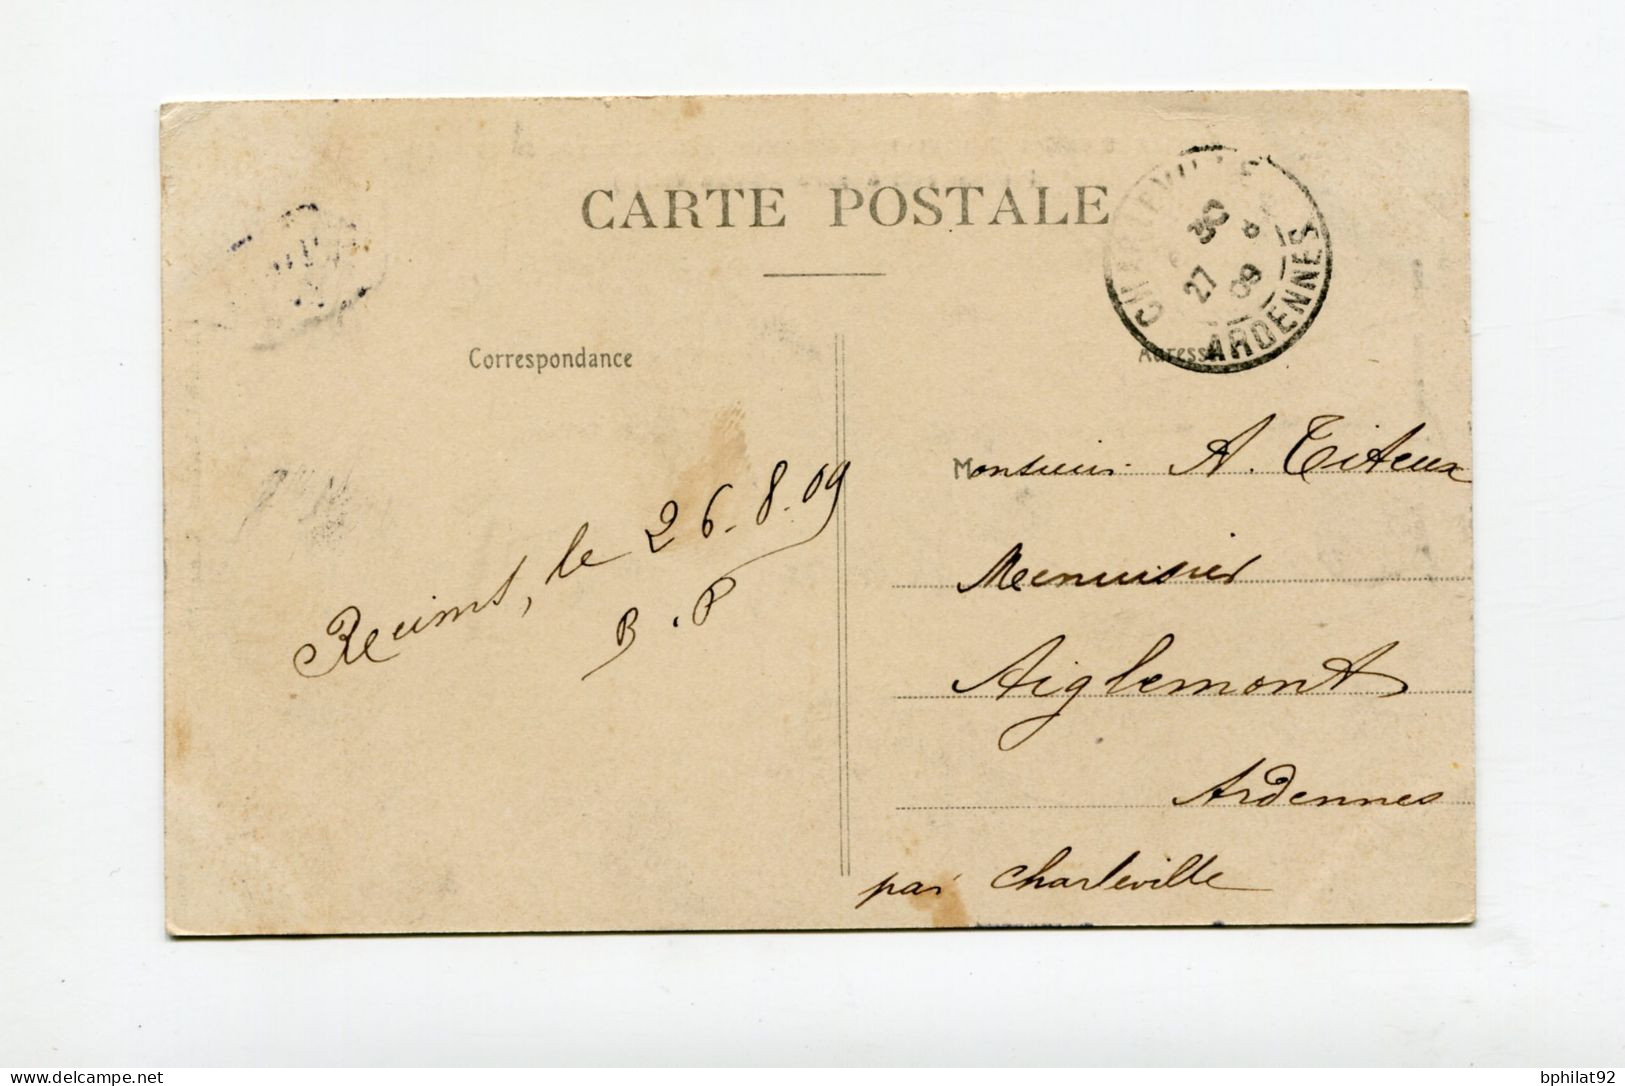 CARTE POSTALE
CHARLEVILLE
27 8
09
ARDENNES
Correspondance
Adresse
Reims, le 26.8.09
B.P
Monsieur A. Titeux
Menuisier
Aiglemont
Ardennes
par Charleville
delcampe.net
bphilat92